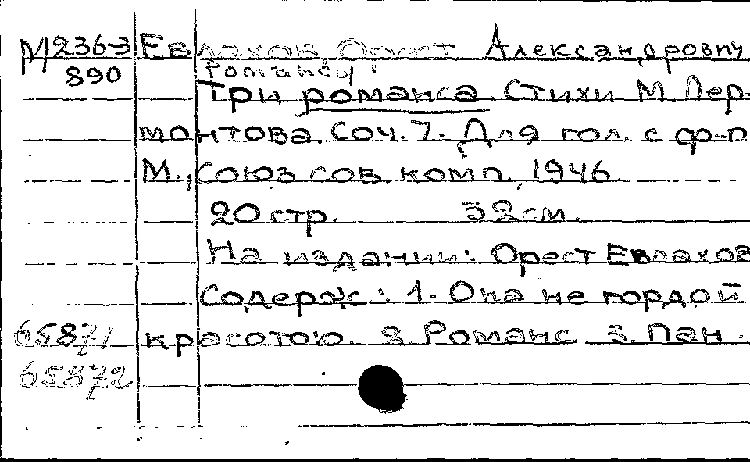 М236-3 Евлахов, Орест Александрович
890 Романсы.
Три романса. Стихи М. Лер-
монтова. Соч. 7. Для гол. с ф-п
М., Союз сов. комп., 1946
20 стр. 32 см.
На издании: Орест Евлахов
Содерж: 1. Она не гордой
65871 красотою. 2. Романс 3. Пан.
65872